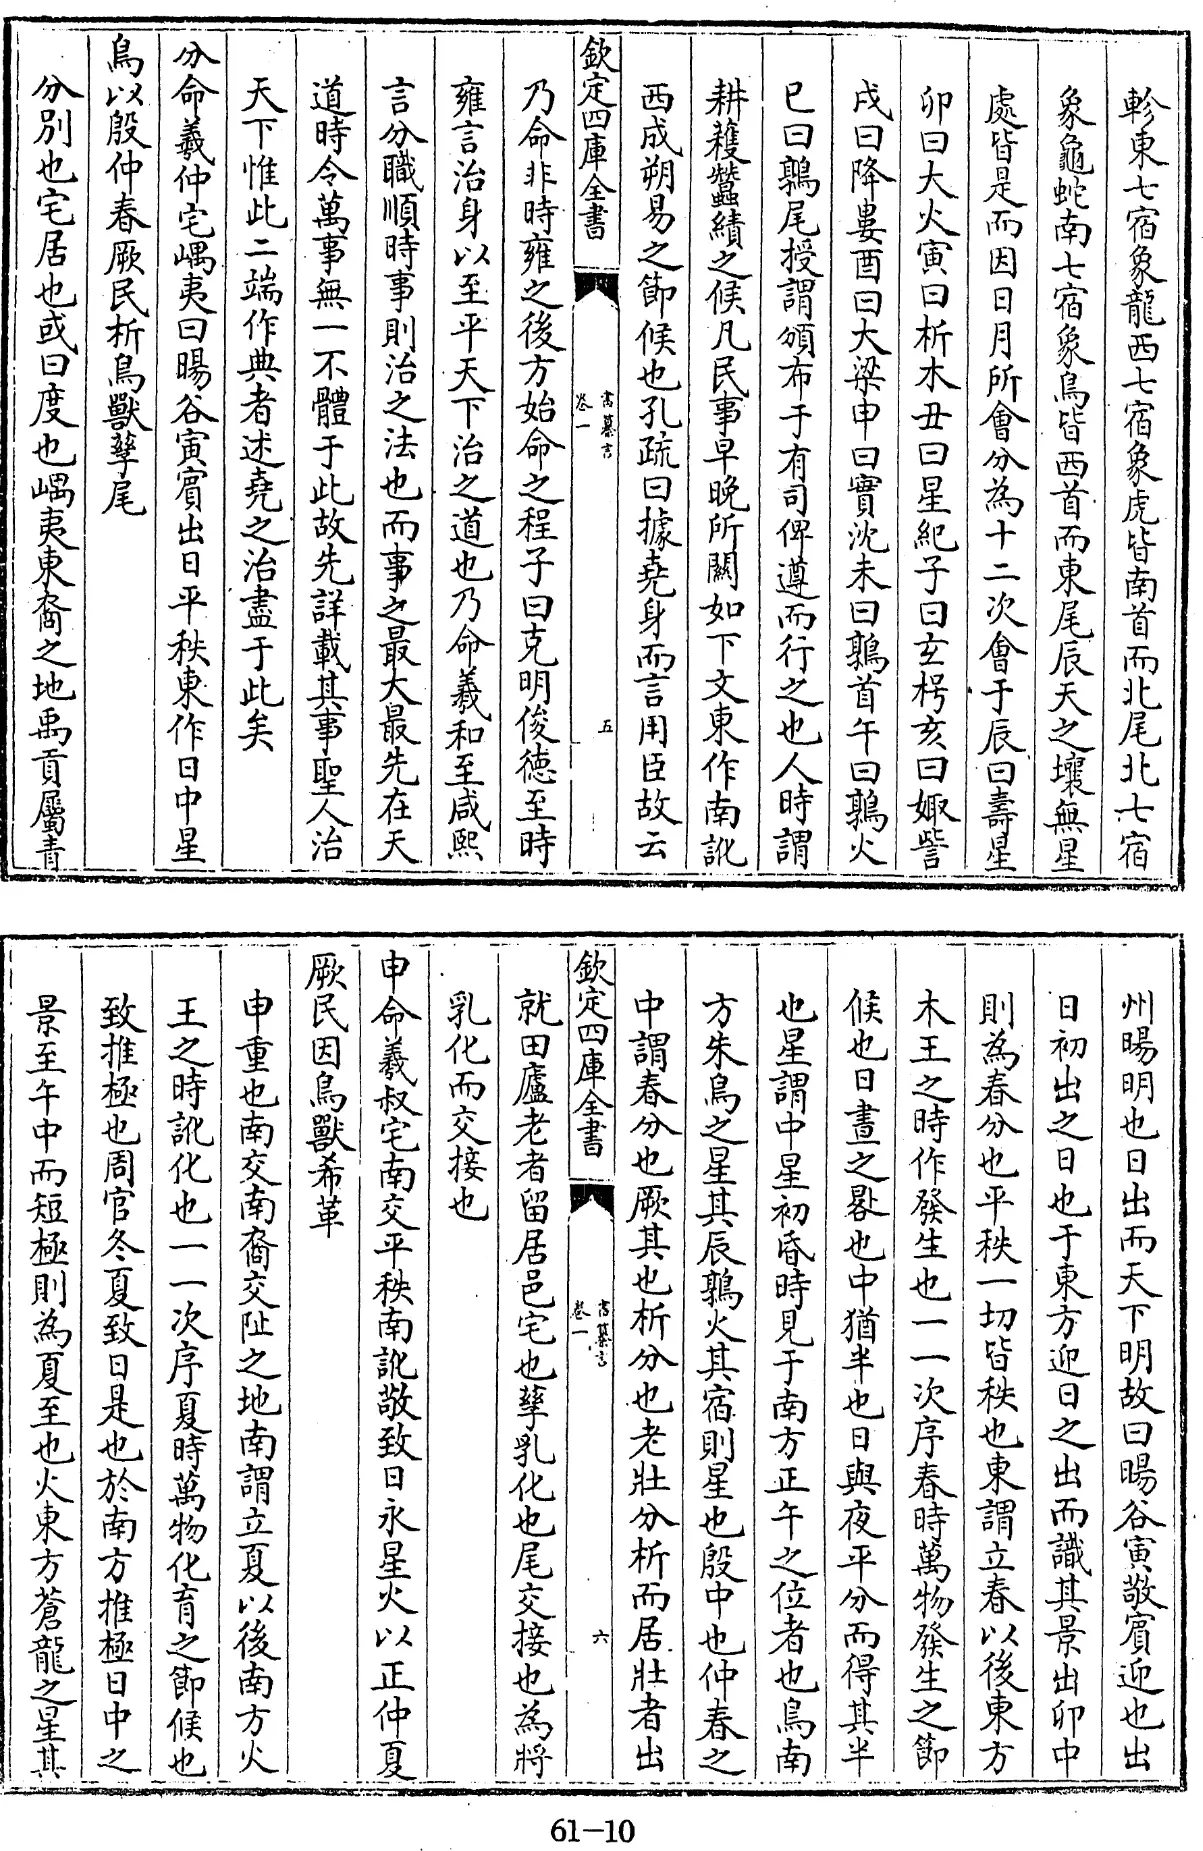 軫東七宿象龍西七宿象虎皆南首而北尾北七宿
象龜蛇南七宿象鳥皆西首而東尾辰天之壤無星
處皆是而因日月所會分為十二次會于辰曰壽星
卯曰大火寅曰析木丑曰星紀子曰玄枵亥曰娵訾
戌曰降婁酉曰大梁申曰實沈未曰鶉首午曰鶉火
巳曰鶉尾授謂頒布于有司俾遵而行之也人時謂
耕穫蠶績之候凡民事早晚所關如下文東作南訛
西成朔易之節候也孔疏曰據堯身而言用臣故云
欽定四庫全書
書纂言
卷一
五
乃命非時雍之後方始命之程子曰克明俊德至時
雍言治身以至平天下治之道也乃命羲和至咸熙
言分職順時事則治之法也而事之最大最先在天
道時令萬事無一不體于此故先詳載其事聖人治
天下惟此二端作典者述堯之治盡于此矣
分命羲仲宅嵎夷曰暘谷寅賓出日平秩東作日中星
鳥以殷仲春厥民析鳥獸孳尾
分別也宅居也或曰度也嵎夷東裔之地禹貢屬青
州暘明也日出而天下明故曰暘谷寅敬賓迎也出
日初出之日也于東方迎日之出而識其景出卯中
則為春分也平秩一切皆秩也東謂立春以後東方
木王之時作發生也一一次序春時萬物發生之節
候也日晝之晷也中猶半也日與夜平分而得其半
也星謂中星初昏時見于南方正午之位者也鳥南
方朱鳥之星其辰鶉火其宿則星也殷中也仲春之
中謂春分也厥其也析分也老壯分析而居壯者出
欽定四庫全書
書纂言
卷一
六
就田廬老者留居邑宅也孳乳化也尾交接也為將
乳化而交接也
申命羲叔宅南交平秩南訛敬致日永星火以正仲夏
厥民因鳥獸希革
申重也南交南裔交阯之地南謂立夏以後南方火
王之時訛化也一一次序夏時萬物化育之節候也
致推極也周官冬夏致日是也於南方推極日中之
景至午中而短極則為夏至也火東方蒼龍之星其
61-10